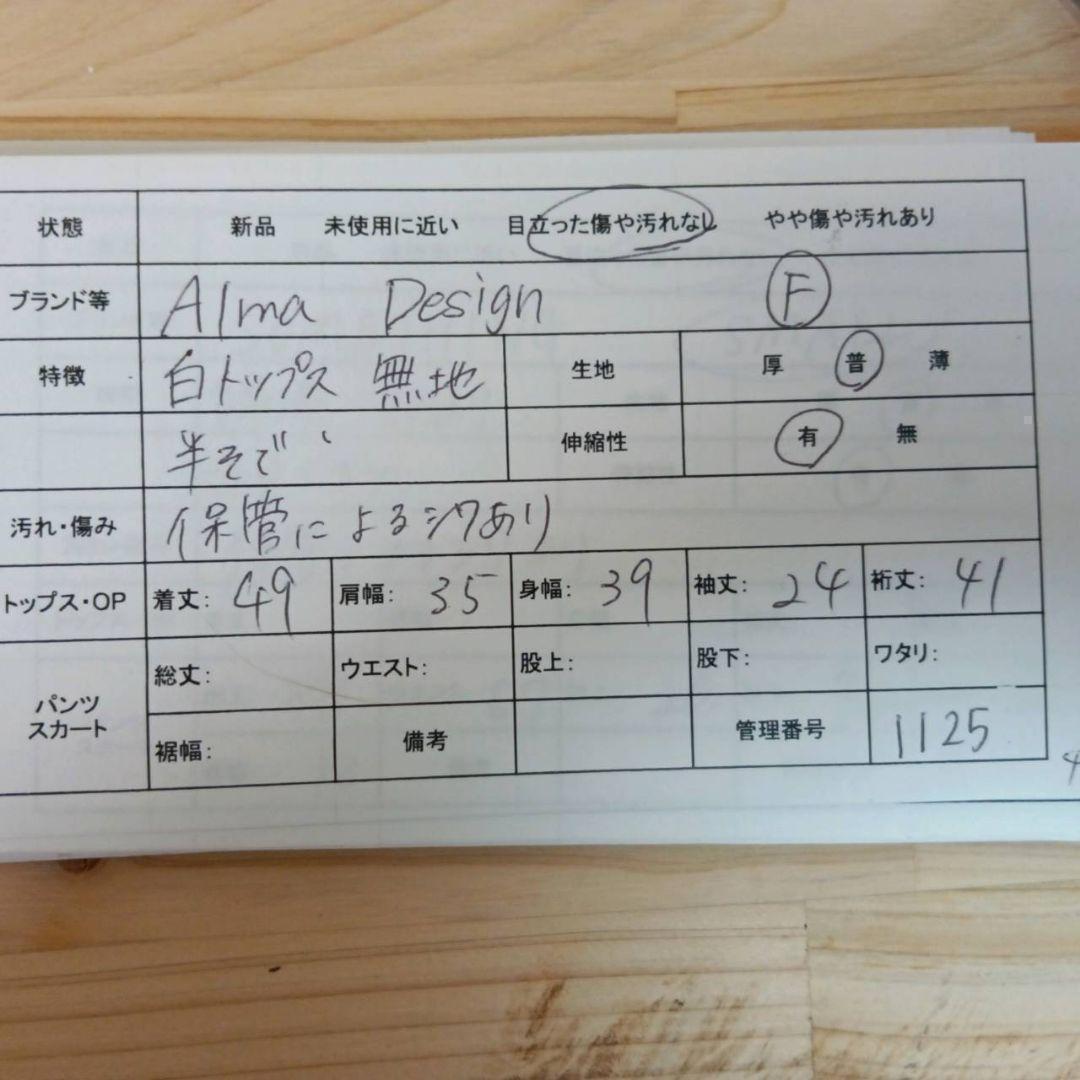 状態 新品 未使用に近い 目立った傷や汚れなし やや傷や汚れあり
ブランド等 Alma Design F
特徴 白トップス 無地 生地 厚 普 薄
半そで 伸縮性 有 無
汚れ・傷み 保管によるシワあり
トップス・OP 着丈: 49 肩幅: 35 身幅: 39 袖丈: 24 裄丈: 41
パンツ スカート 総丈: ウエスト: 股上: 股下: ワタリ:
裾幅: 備考 管理番号 1125